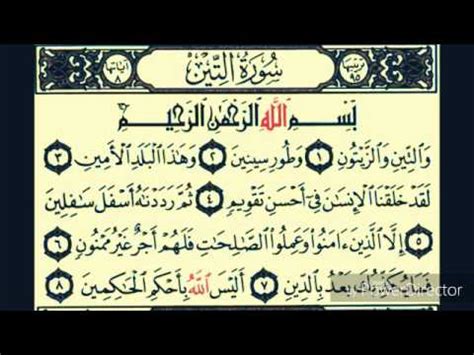 ترتيبها ٩٥ سُورَةُ التِّينِ آياتها ٨
بِسْمِ اللَّهِ الرَّحْمَٰنِ الرَّحِيمِ
وَالتِّينِ وَالزَّيْتُونِ ١ وَطُورِ سِينِينَ ٢ وَهَٰذَا الْبَلَدِ الْأَمِينِ ٣
لَقَدْ خَلَقْنَا الْإِنسَٰنَ فِي أَحْسَنِ تَقْوِيمٍ ٤ ثُمَّ رَدَدْنَٰهُ أَسْفَلَ سَافِلِينَ
٥ إِلَّا الَّذِينَ ءَامَنُوا وَعَمِلُوا الصَّٰلِحَٰتِ فَلَهُمْ أَجْرٌ غَيْرُ مَمْنُونٍ ٦
فَمَا يُكَذِّبُكَ بَعْدُ بِالدِّينِ ٧ أَلَيْسَ اللَّهُ بِأَحْكَمِ الْحَاكِمِينَ ٨
PowerDirector